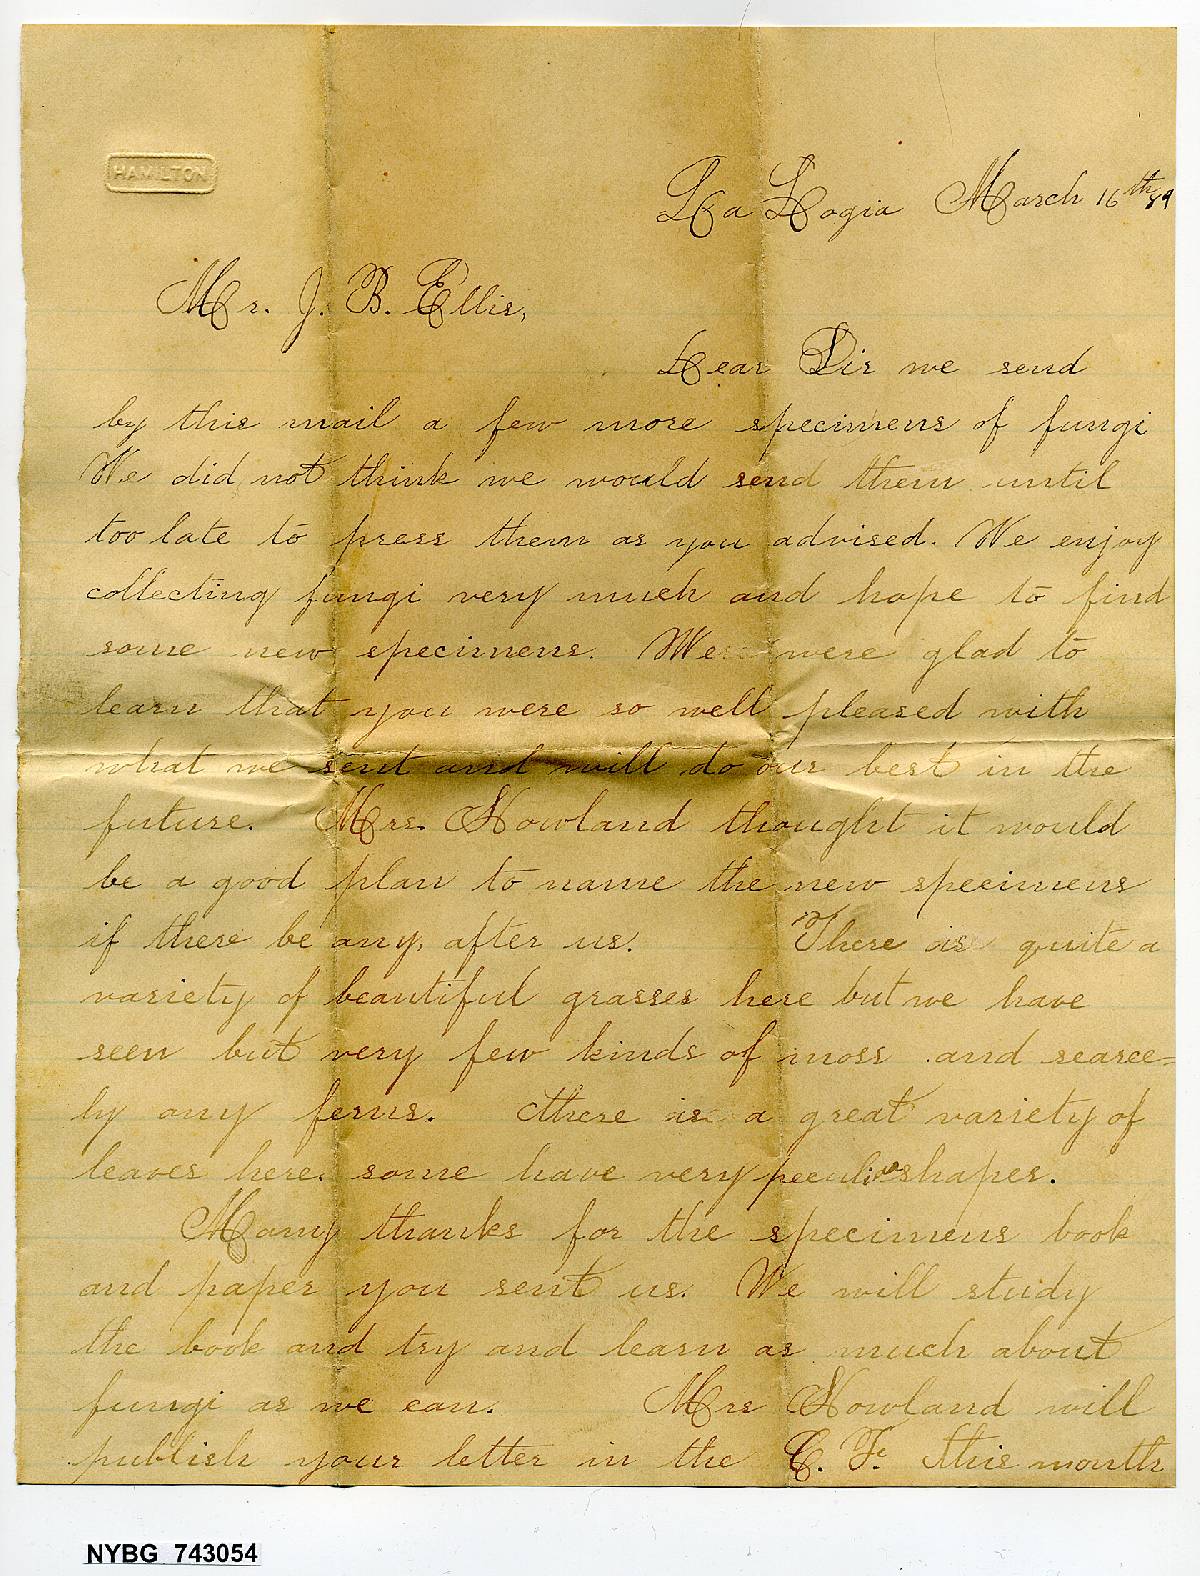 HAMILTON
La Logia March 16th 89
Mr. J. B. Ellis,
Dear Sir we send
by this mail a few more specimens of fungi
We did not think we would send them until
too late to press them as you advised. We enjoy
collecting fungi very much and hope to find
some new specimens. We were glad to
learn that you were so well pleased with
what we sent and will do our best in the
future. Mrs. Howland thought it would
be a good plan to name the new specimens
if there be any, after us. There is quite a
variety of beautiful grasses here but we have
seen but very few kinds of moss and scarce=
ly any ferns. There is a great variety of
leaves here. some have very peculiar shapes.
Many thanks for the specimens book
and paper you sent us. We will study
the book and try and learn as much about
fungi as we can. Mrs Howland will
publish your letter in the C. F. this month
NYBG 743054